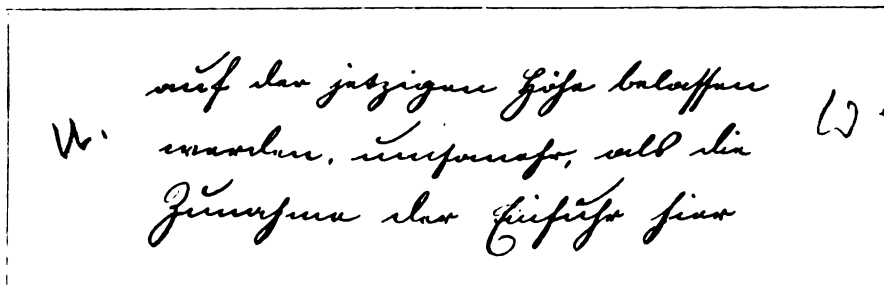 auf der jetzigen Höhe belassen
werden, umsomehr, als die
Zunahme der Einfuhr hier